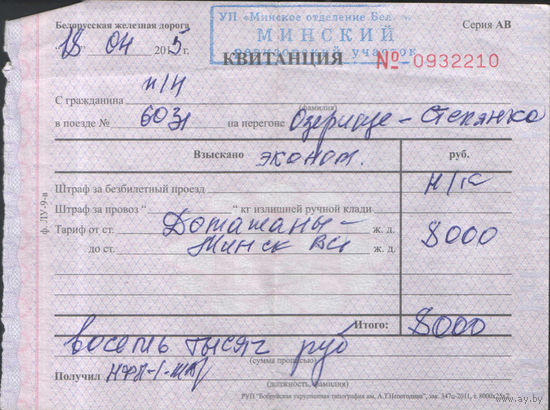 УП «Минское отделение Бел
Белорусская железная дорога МИНСКИЙ Серия АВ
18 " 04 2015 г. ревизорский участок
КВИТАНЦИЯ № 0932210
п/н
С гражданина
(фамилия)
в поезде № 6031 на перегоне Озерище - Степянка
Взыскано эконом. руб.
Штраф за безбилетный проезд н/п
Штраф за провоз " " кг излишней ручной клади
Тариф от ст. - ж. д. 8000
до ст. Минск Вс ж. д.
Итого: 8000
восемь тысяч руб
(сумма прописью)
Получил
(должность, фамилия)
РУП "Бобруйская укрупненная типография им. А.Т.Непогодина", зак. 347ц-2011, т. 8000х25х2
ф. ЛУ-9-а
www.ay.by